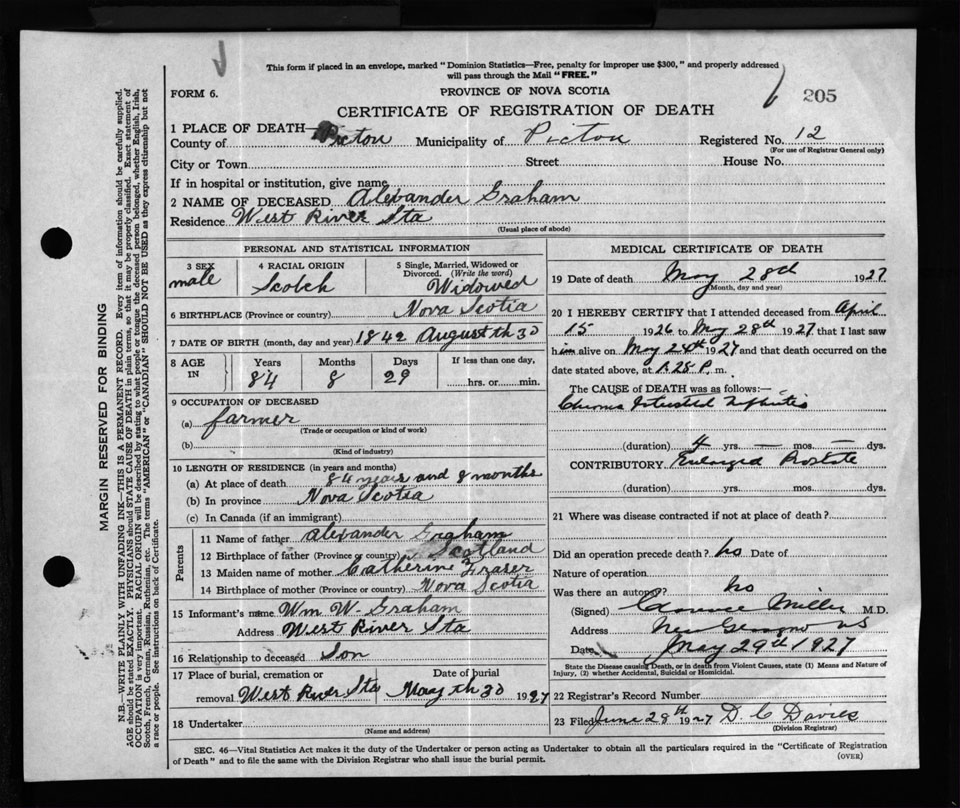 This form if placed in an envelope, marked "Dominion Statistics—Free, penalty for improper use $300," and properly addressed
will pass through the Mail "FREE."
FORM 6.
PROVINCE OF NOVA SCOTIA
205
CERTIFICATE OF REGISTRATION OF DEATH
1 PLACE OF DEATH—
County of Pictou Municipality of Pictou Registered No. 12
(For use of Registrar General only)
City or Town Street House No.
If in hospital or institution, give name
2 NAME OF DECEASED Alexander Graham
Residence West River Sta
(Usual place of abode)
PERSONAL AND STATISTICAL INFORMATION
3 SEX male
4 RACIAL ORIGIN Scotch
5 Single, Married, Widowed or
Divorced. (Write the word)
Widowed
6 BIRTHPLACE (Province or country) Nova Scotia
7 DATE OF BIRTH (month, day and year) 1842 August th 30
8 AGE IN
Years Months Days If less than one day,
84 8 29 hrs. or min.
9 OCCUPATION OF DECEASED
(a) farmer
(Trade or occupation or kind of work)
(b)
(Kind of industry)
10 LENGTH OF RESIDENCE (in years and months)
(a) At place of death 84 years and 8 months
(b) In province Nova Scotia
(c) In Canada (if an immigrant)
Parents
11 Name of father Alexander Graham
12 Birthplace of father (Province or country) Scotland
13 Maiden name of mother Catherine Fraser
14 Birthplace of mother (Province or country) Nova Scotia
15 Informant's name Wm W. Graham
Address West River Sta
16 Relationship to deceased Son
17 Place of burial, cremation or Date of burial
removal West River Sta May th 30 1927
18 Undertaker
(Name and address)
MEDICAL CERTIFICATE OF DEATH
19 Date of death May 28th 1927
(Month, day and year)
20 I HEREBY CERTIFY that I attended deceased from April
15 1926 to May 28th 1927 that I last saw
him alive on May 24th 1927 and that death occurred on the
date stated above, at P. m.
The CAUSE of DEATH was as follows:—
Chronic Interstitial Nephritis
(duration) 4 yrs. — mos. — dys.
CONTRIBUTORY Enlarged Prostate
(duration) yrs. mos. dys.
21 Where was disease contracted if not at place of death?
Did an operation precede death? no Date of
Nature of operation
Was there an autopsy? no
(Signed) Clarence Miller M.D.
Address New Glasgow NS
Date May 29th 1927
State the Disease causing Death, or in death from Violent Causes, state (1) Means and Nature of
Injury, (2) whether Accidental, Suicidal or Homicidal.
22 Registrar's Record Number
23 Filed June 28th 1927 D. C Davies
(Division Registrar)
SEC. 46—Vital Statistics Act makes it the duty of the Undertaker or person acting as Undertaker to obtain all the particulars required in the "Certificate of Registration
of Death" and to file the same with the Division Registrar who shall issue the burial permit.
(OVER)
MARGIN RESERVED FOR BINDING
N.B.—WRITE PLAINLY WITH UNFADING INK—THIS IS A PERMANENT RECORD. Every item of information should be carefully supplied.
AGE should be stated EXACTLY. PHYSICIANS should STATE CAUSE OF DEATH in plain terms, so that it may be properly classified. Exact statement of
OCCUPATION is very important. RACIAL ORIGIN will be described by stating to what people or tongue the deceased person belonged, whether English, Irish,
Scotch, French, German, Russian, Ruthenian, etc. The terms "AMERICAN" or "CANADIAN" SHOULD NOT BE USED as they express citizenship but not
a race or people. See instructions on back of Certificate.